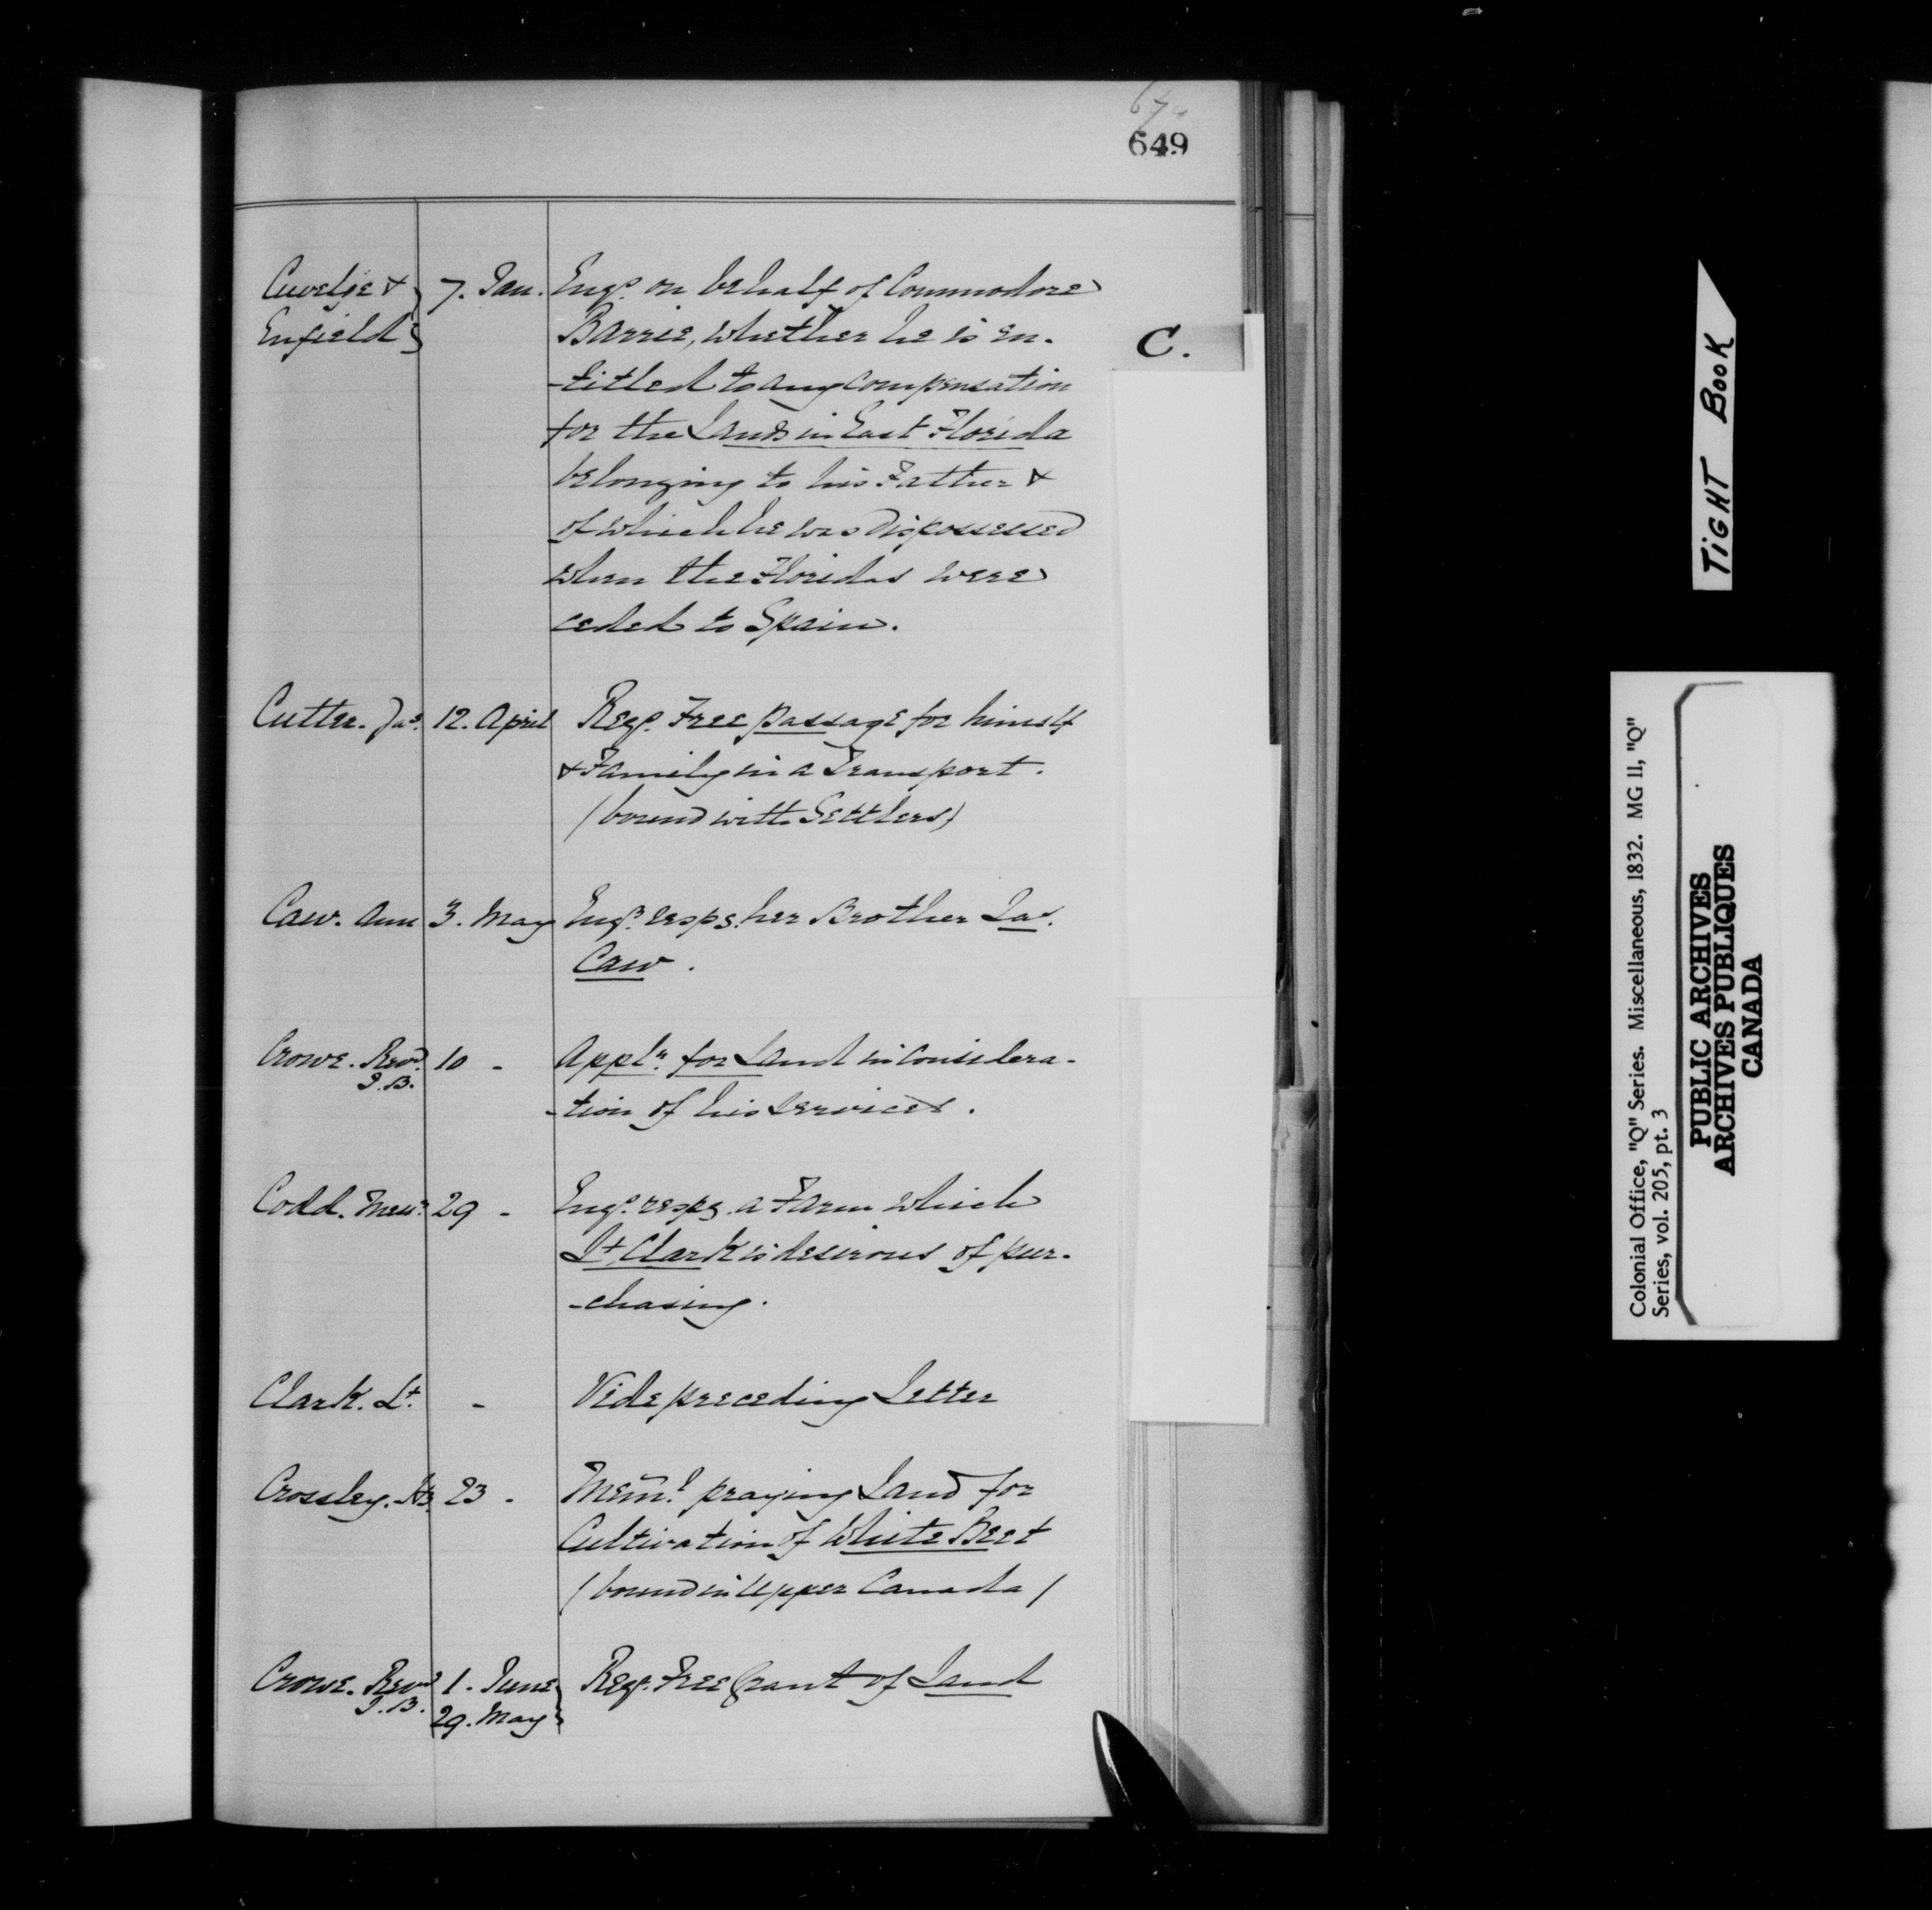 649
C.
Cuvelje & } 7. Jan. Engs. on behalf of Commodore
Enfield } Barrie, whether he is en-
-titled to any compensation
for the Lands in East Florida
belonging to his Father &
of which he was dispossessed
when the Floridas were
ceded to Spain.
Cutter. Jas. 12. April Reqs. Free passage for himself
& Family in a Transport.
(bound with Settlers)
Caw. Ann 3. May Engs. respg. her Brother Jas.
Caw.
Crowe. Revd. 10 - Appln. for Land in considera-
J.B.
-tion of his services.
Codd. Messrs. 29 - Engs. respg. a Farm which
Lt Clark is desirous of pur-
-chasing.
Clark. Lt. - Vide preceding Letter
Crossley. 23 - Meml. praying Land for
Cultivation of White Beet
(bound in Upper Canada)
Crowe. Revd. 1. June } Reqs. Free Grant of Land
J.B. 29. May }
TIGHT BOOK
Colonial Office, "Q" Series. Miscellaneous, 1832. MG 11, "Q"
Series, vol. 205, pt. 3
PUBLIC ARCHIVES
ARCHIVES PUBLIQUES
CANADA